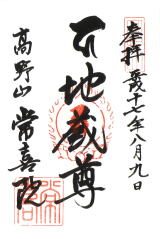 奉拝 平成十七年八月九日
地蔵尊
高野山 常喜院